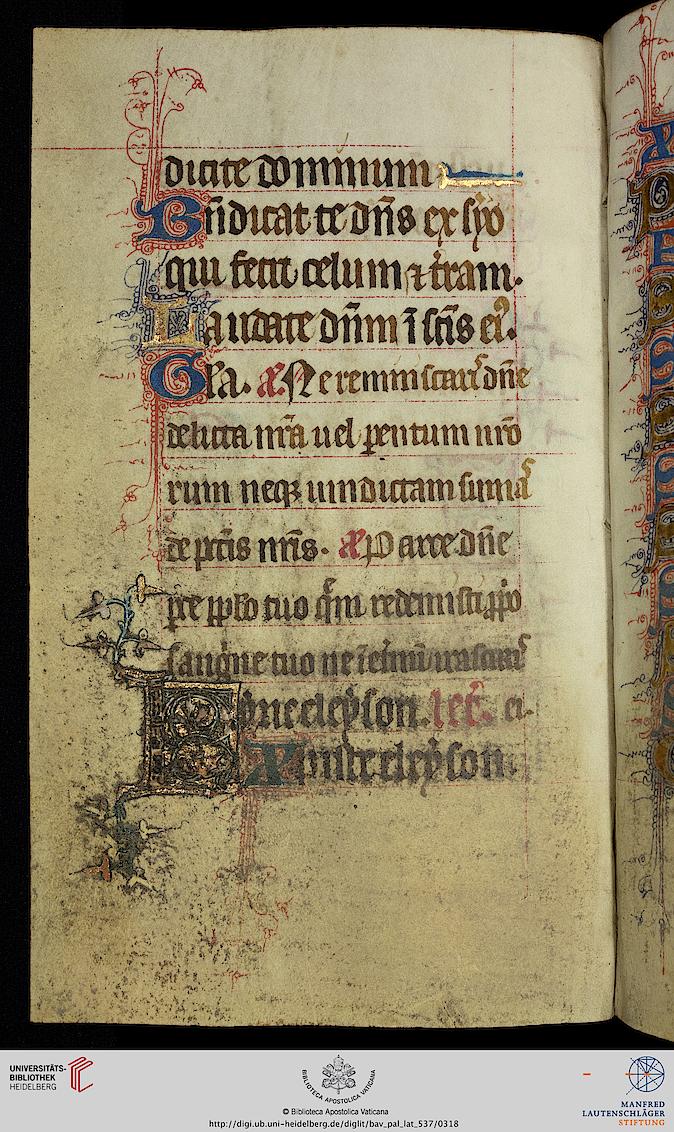 dicite dominum
Bn̄dicat te dn̄s ex syo
qui fecit celum ⁊ t̄ram.
Laudate dn̄m ī sc̄is ei⁹.
Gl̄a. Ne reminiscaris dn̄e
delicta nr̄a uel parentum nr̄o
rum neqꝫ uindictam sumas
de pc̄tis nr̄is. Parce dn̄e
ꝑce pp̄lo tuo q̄m redemisti p̄p̄o
sanguine tuo ne
Kyrieeleyson. let̄.
Xp̄isteeleyson.
UNIVERSITÄTS-
BIBLIOTHEK
HEIDELBERG
BIBLIOTECA APOSTOLICA VATICANA
© Biblioteca Apostolica Vaticana
http://digi.ub.uni-heidelberg.de/diglit/bav_pal_lat_537/0318
MANFRED
LAUTENSCHLÄGER
STIFTUNG